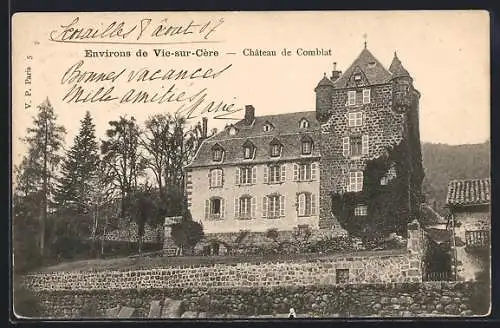 Scrouilles 8 août 07
Environs de Vic-sur-Cère — Château de Comblat
Bonnes vacances
Mille amitiés
Marie
V. P. Paris 5